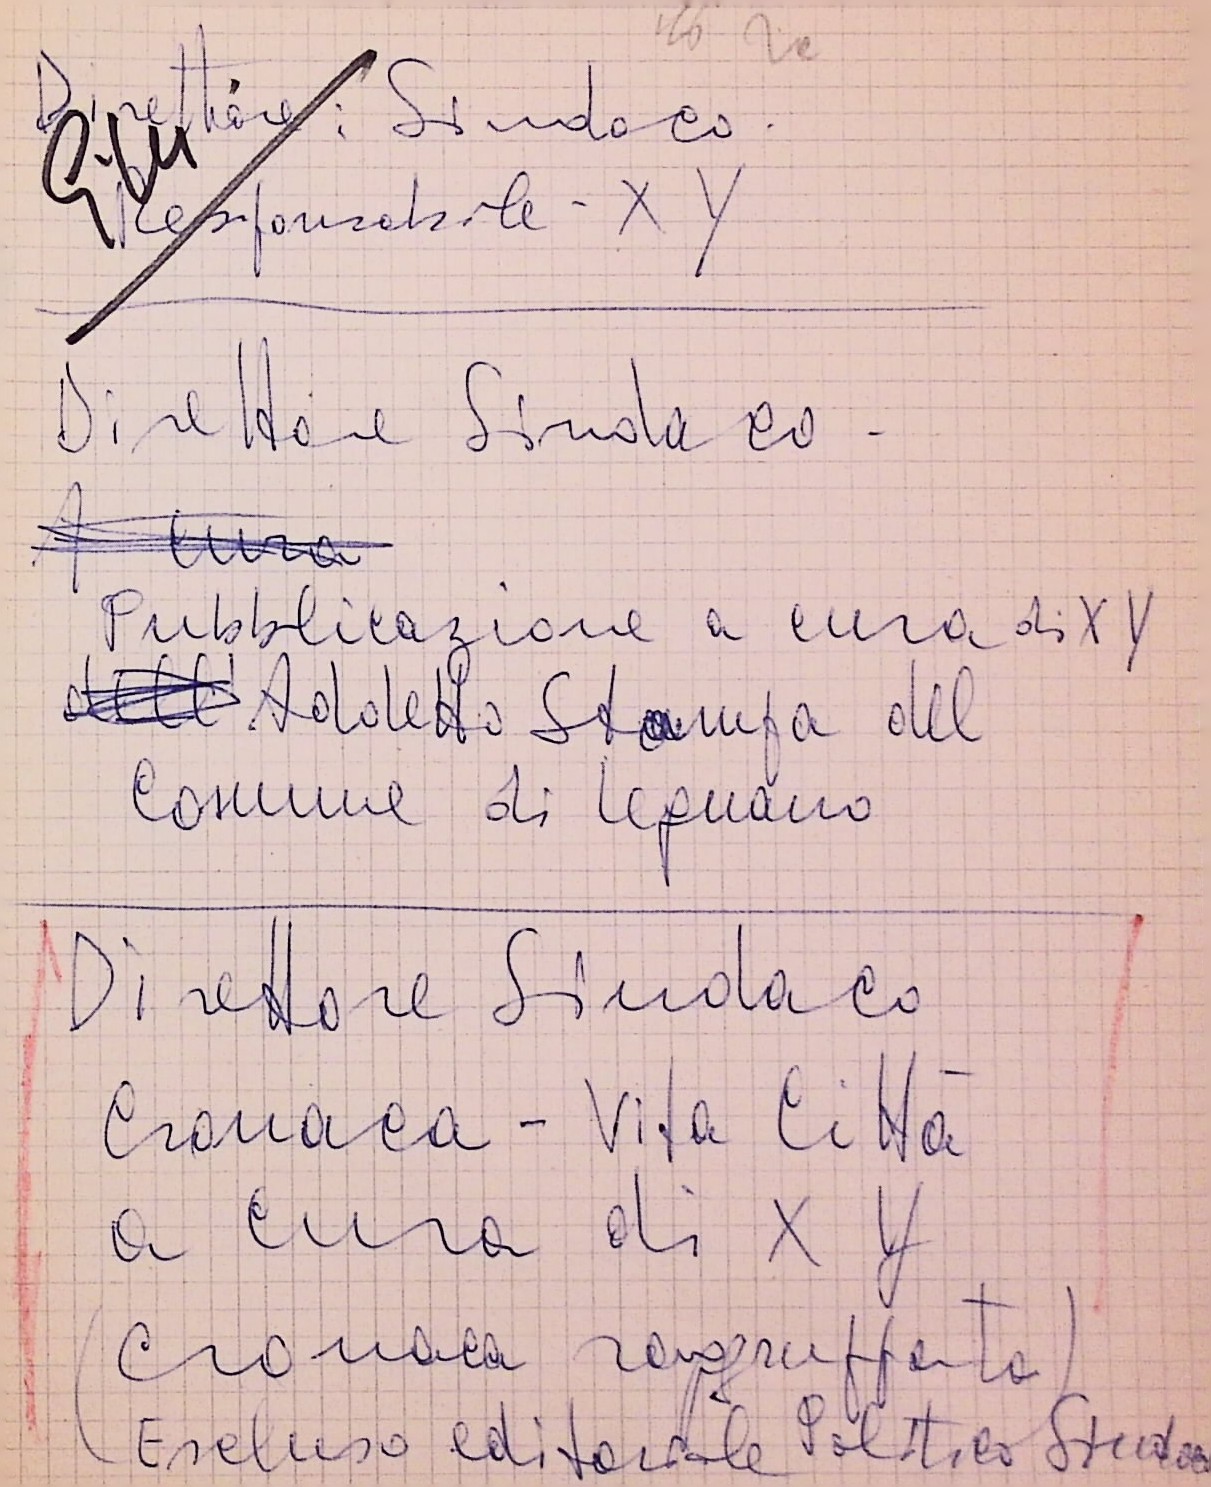 Direttore: Sindaco.
Responsabile - X Y
Direttore Sindaco -
A cura
Pubblicazione a cura di X Y
dell' Addetto Stampa del
Comune di Legnano
Direttore Sindaco
Cronaca - Vita Città
a cura di X Y
(Cronaca raggruppata)
(Escluso editoriale Politico Sindaco